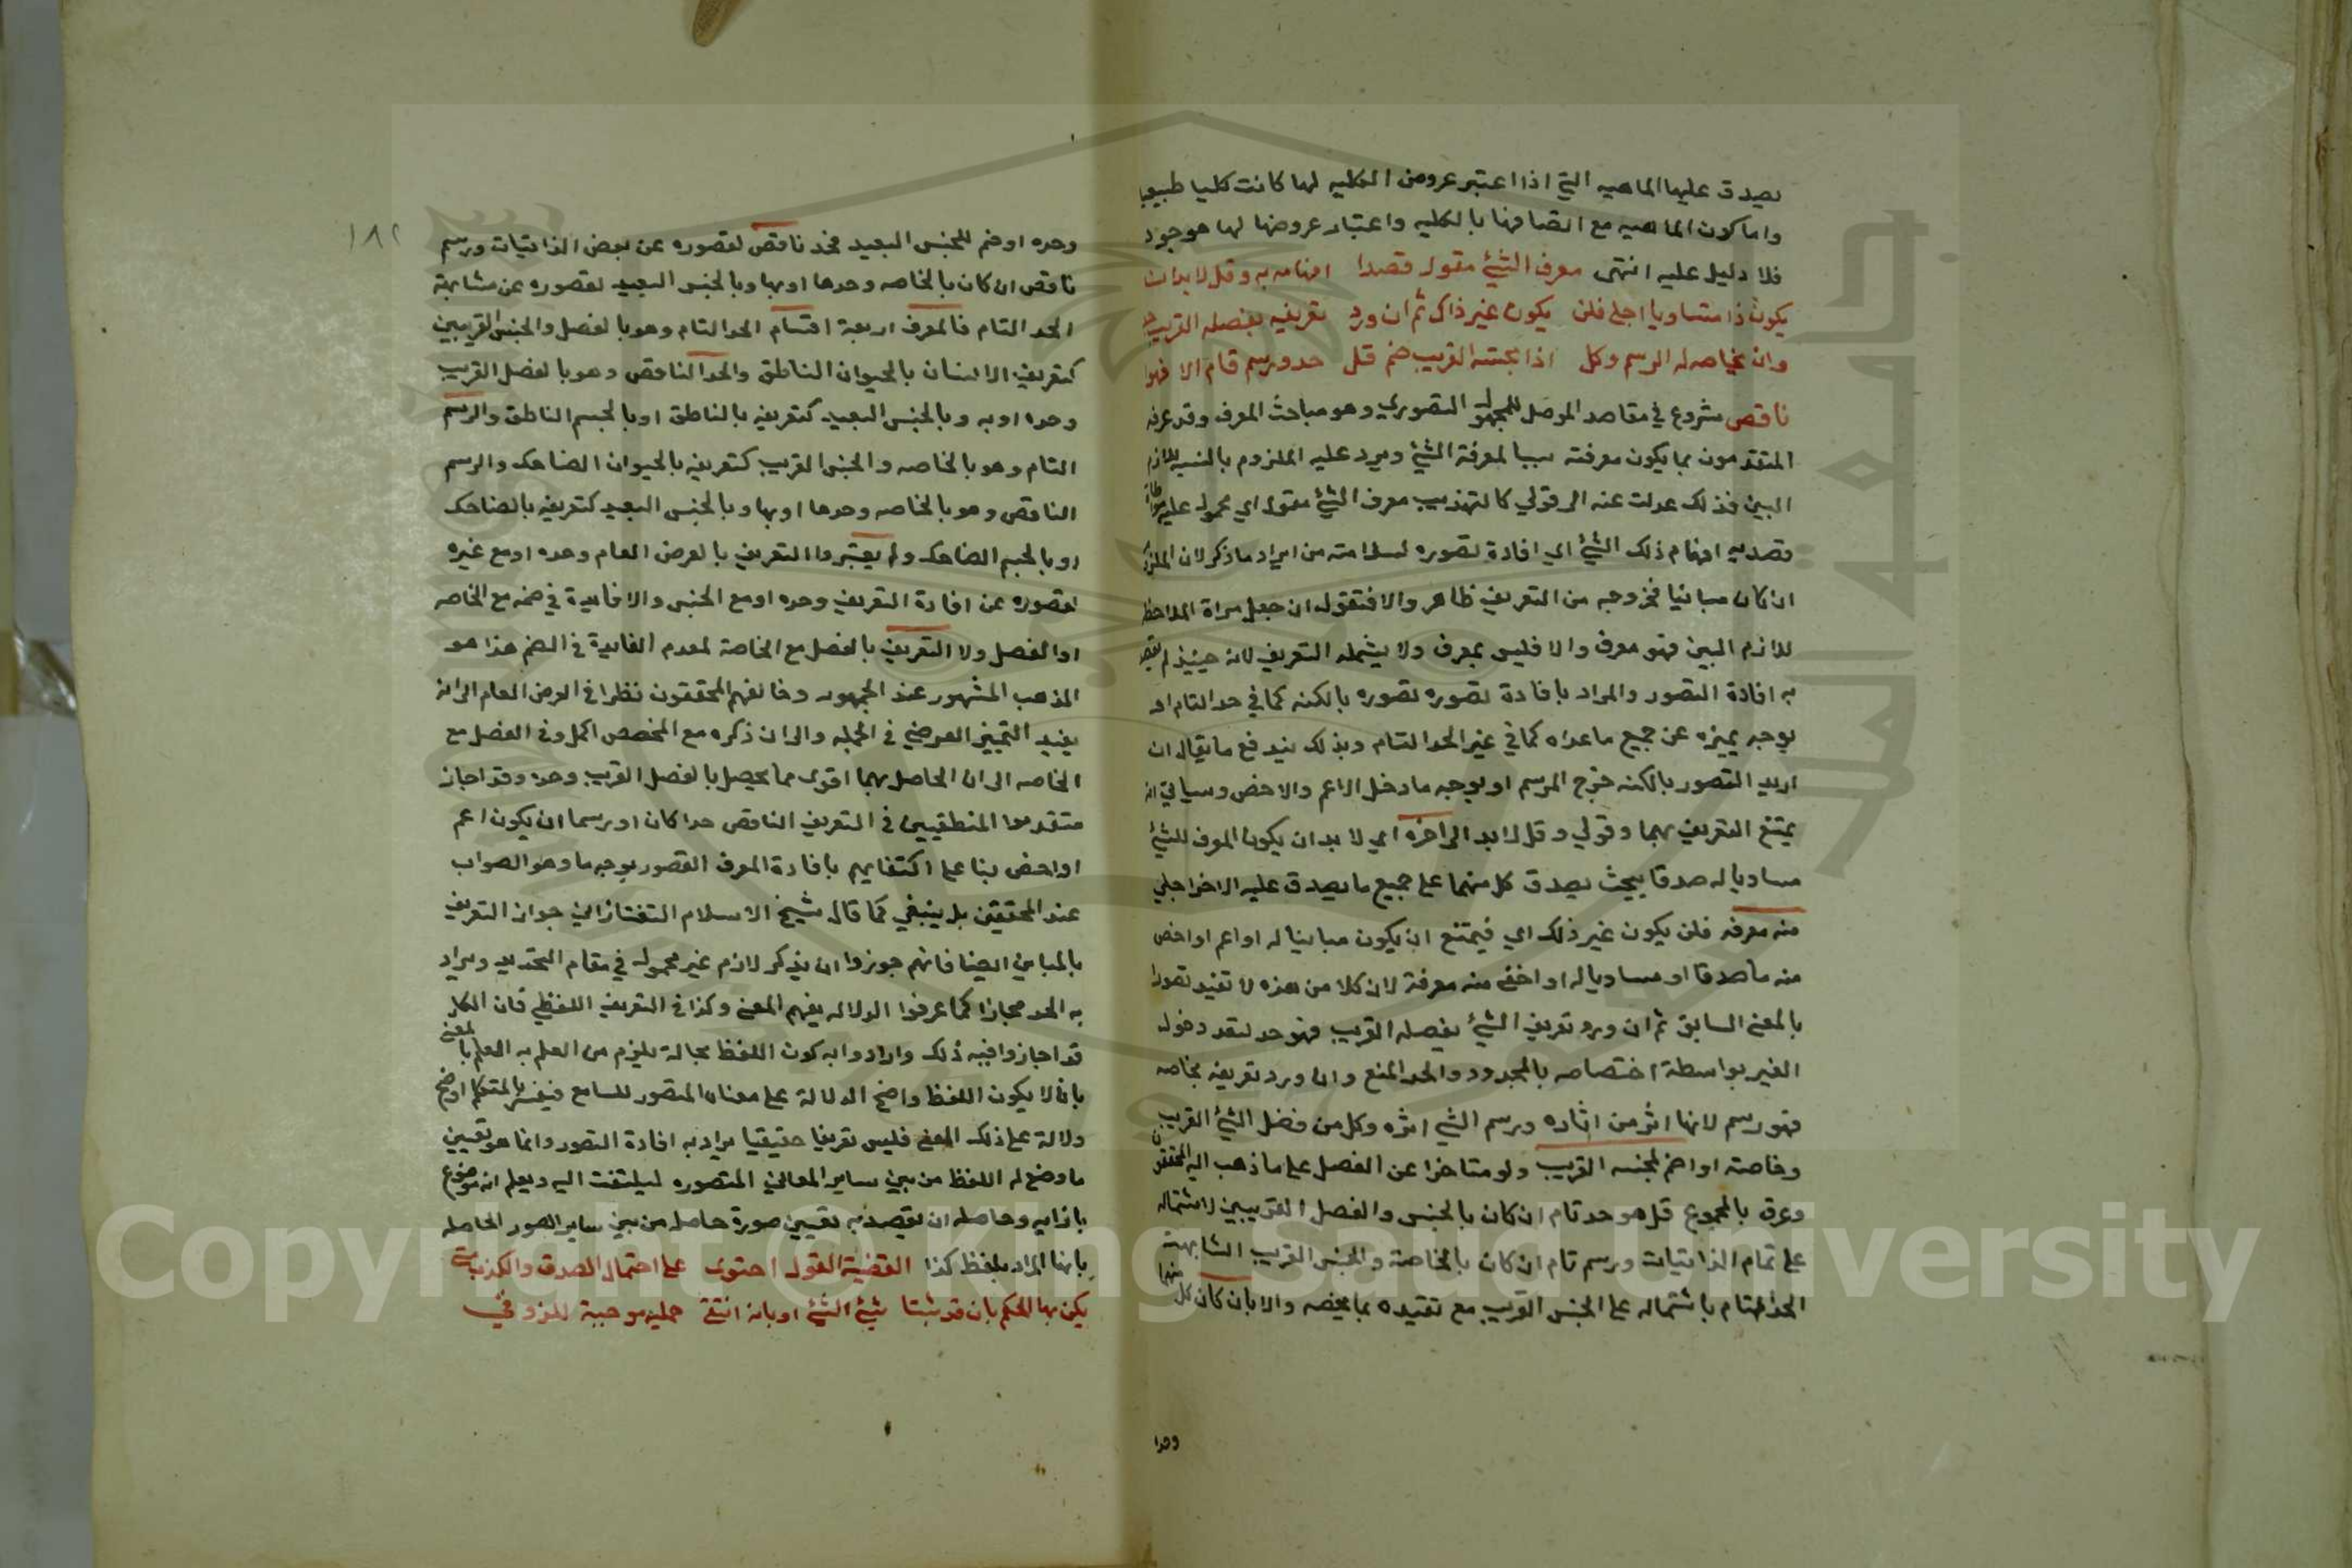 يصدق عليها الماهيه التي اذا اعتبر عروض الكليه لها كانت كليا طبيعيا
واما كون الماهيه مع اتصافها بالكليه واعتبار عروضها لها موجود
فلا دليل عليه انتهى معرف الشئ مقول قصدا افهامه به وقل لا بد ان
يكون ذا متساويا اجلى فلن يكون غير ذاك ثم ان ورد تعريفه بفصله القريب حد
وان بخاصه له الرسم وكل اذا بجنسه القريب ضم قل حد ورسم تام الا فهوا
ناقص شروع في مقاصد الموصل للمجهول التصوري وهو مباحث المعرف وقد عرفه
المتقدمون بما يكون معرفته سببا لمعرفة الشئ ويرد عليه الملزوم بالنسبه للازم
البين فذلك عدلت عنه الى قولي كالتهذيب معرف الشئ مقول اي محمول عليه
قصد به افهام ذلك الشئ اي افادة تصوره لسلامته من ايراد ما ذكر لان الملزوم
ان كان مباينا فخروجه من التعريف ظاهر والا فنقول ان جعل مراة لملاحظة
للازم البين فهو معرف والا فليس بمعرف ولا يشمله التعريف لانه حينيذ لم يقصد
به افادة التصور والمراد بافادة تصوره تصوره بالكنه كما في حد التام او
بوجه يميزه عن جميع ما عداه كما في غير الحد التام وبذلك يندفع ما يقال ان
اريد التصور بالكنه خرج الرسم او بوجه ما دخل الاعم والاخص وسياتي انه
يمتنع التعريف بهما وقولي وقل لا بد الى اخره اي لا بد ان يكون المعرف للشئ
مساويا له صدقا بحيث يصدق كل منهما على جميع ما يصدق عليه الاخر اجلى
منه معرفه فلن يكون غير ذلك اي فيمتنع ان يكون مباينا له او اعم او اخص
منه ما صدقا او مساويا له او اخفى منه معرفة لان كلا من هذه لا تفيد تصورا
بالمعنى السابق ثم ان ورد تعريف الشئ بفصله القريب فهو حد لبعد دخول
الغير بواسطة اختصاصه بالمحدود والحد المنع وان ورد تعريفه بخاصه
فهو رسم لانها اثر من اثاره ورسم الشئ اثره وكل من فصل الشئ القريب
وخاصته اذا ضم لجنسه القريب ولو متاخرا عن الفصل على ما ذهب اليه المحققون
وعرف بالمجموع قل هو حد تام ان كان بالجنس والفصل القريبين لاشتماله
على تمام الذاتيات ورسم تام ان كان بالخاصة والجنس القريب لمشابهته
الحد التام باشتماله على الجنس القريب مع تقييده بما يخصه والا بان كان كل منهما
وحدا
١٨٢
وحده او ضم للجنس البعيد فحد ناقص لقصوره عن بعض الذاتيات ورسم
ناقص ان كان بالخاصه وحدها او بها وبالجنس البعيد لقصوره عن مشابهة
الحد التام فالمعرف اربعة اقسام الحد التام وهو بالفصل والجنس القريبين
كتعريف الانسان بالحيوان الناطق والحد الناقص وهو بالفصل القريب
وحده او به وبالجنس البعيد كتعريفه بالناطق او بالجسم الناطق والرسم
التام وهو بالخاصه والجنس القريب كتعريفه بالحيوان الضاحك والرسم
الناقص وهو بالخاصه وحدها او بها وبالجنس البعيد كتعريفه بالضاحك
او بالجسم الضاحك ولم يعتبروا التعريف بالعرض العام وحده او مع غيره
لقصوره عن افادة التعريف وحده او مع الجنس ولا فايدة في ضمه مع الخاصه
او الفصل ولا التعريف بالفصل مع الخاصة لعدم الفايدة في الضم هذا هو
المذهب المشهور عند الجمهور وخالفهم المحققون نظرا في العرض العام الى انه
يفيد التمييز العرضي في الجمله والى ان ذكره مع المخصص اكمل وفي الفصل مع
الخاصه الى ان الحاصل بهما اقوى مما يحصل بالفصل القريب وحده وقد اجاز
متقدموا المنطقيين في التعريف الناقص حدا كان او رسما ان يكون اعم
او اخص بنا على اكتفايهم بافادة المعرف التصور بوجه ما وهو الصواب
عند المحققين بل ينبغي كما قال شيخ الاسلام التفتازاني جواز التعريف
بالمباين ايضا فانهم جوزوا ان يذكر لازم غير محمول في مقام التحديد ويراد
به الحد مجازا كما عرفوا الدلاله بفهم المعنى وكذا في التعريف اللفظي فان الكل
قد اجازوا فيه ذلك وارادوا به كون اللفظ بحالة يلزم من العلم به العلم بالمعنى
بان لا يكون اللفظ واضح الدلالة على معناه المتصور للسامع فيفسر بالمتكلم اوضح
دلالة على ذلك المعنى فليس تعريفا حقيقيا يراد به افادة التصور وانما هو تعيين
ما وضع له اللفظ من بين ساير المعاني المتصوره ليلتفت اليه ويعلم انه موضوع
بازايه وحاصله ان يقصد به تعيين صورة حاصل من بين ساير الصور الحاصله
بانها المراد بلفظ كذا القضية القول احتوى على احتمال الصدق والكذب متى
يكن بها الحكم بان قد ثبتا شئ لشئ او بانه انتفى حمليه موجبة للمزو في